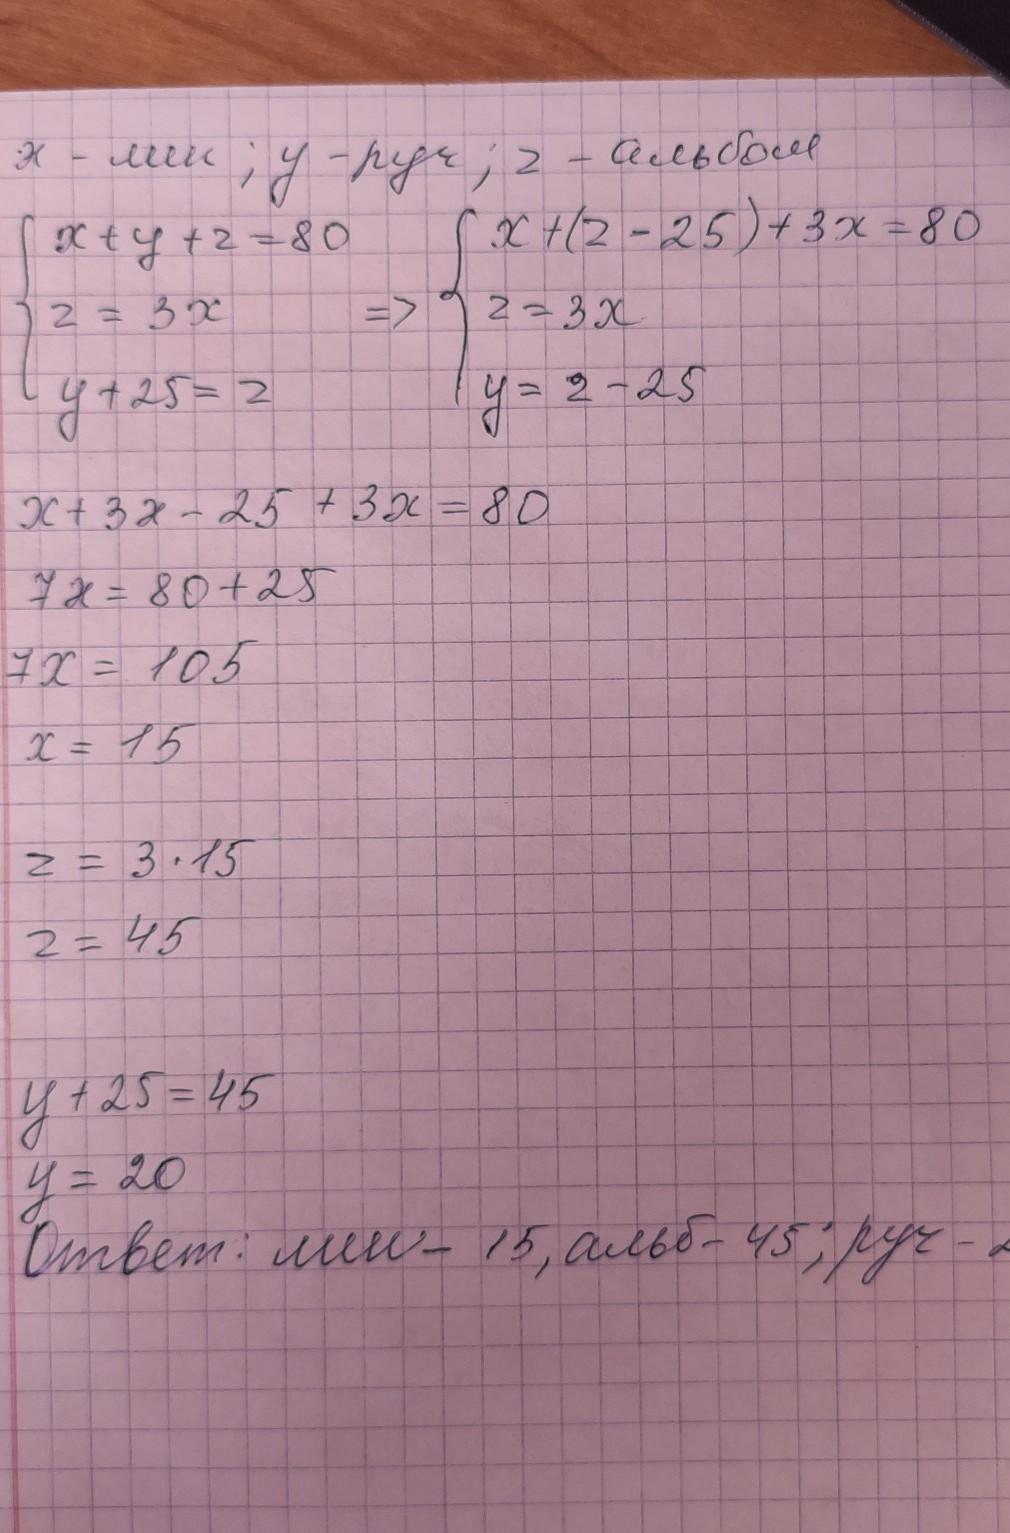 x - лин ; y - руч ; z - альбом
x + y + z = 80 x + (z - 25) + 3x = 80
z = 3x => z = 3x
y + 25 = z y = z - 25
x + 3x - 25 + 3x = 80
7x = 80 + 25
7x = 105
x = 15
z = 3 · 15
z = 45
y + 25 = 45
y = 20
Ответ: лин - 15, альб - 45; руч - 2